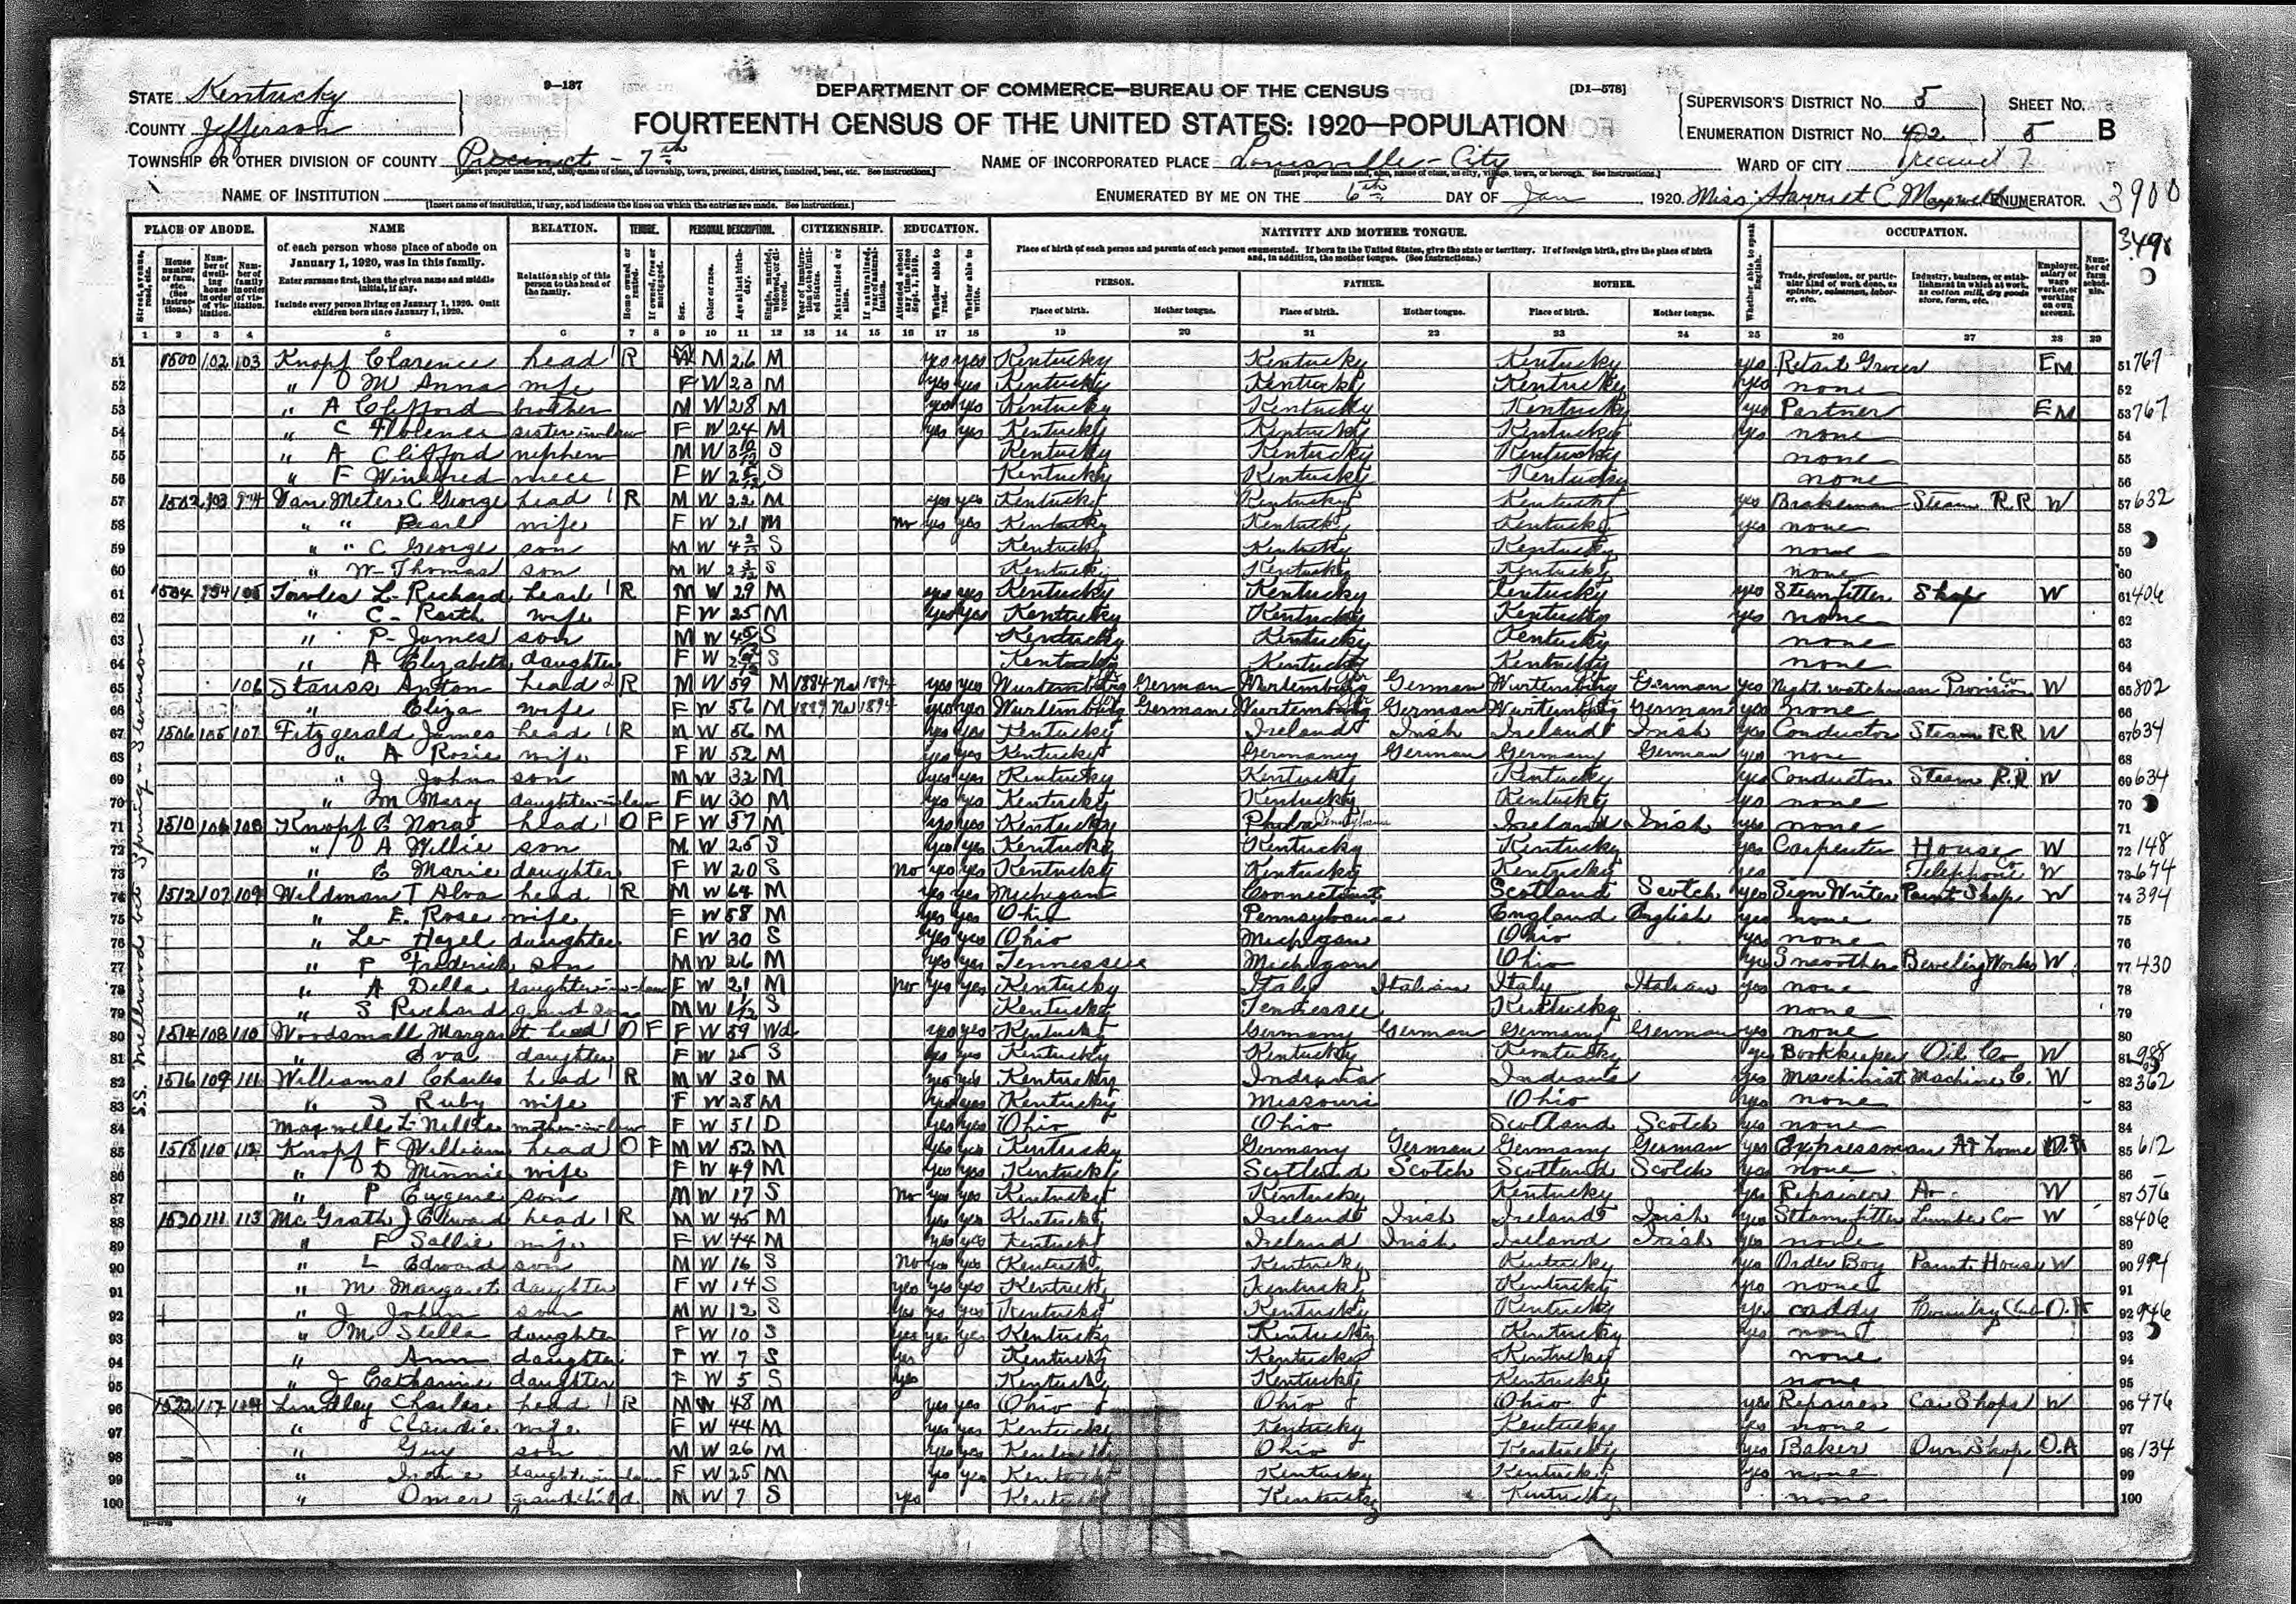 9—137
DEPARTMENT OF COMMERCE—BUREAU OF THE CENSUS
[D1—578]
STATE Kentucky
COUNTY Jefferson
FOURTEENTH CENSUS OF THE UNITED STATES: 1920—POPULATION
SUPERVISOR'S DISTRICT No. 5 SHEET No.
ENUMERATION DISTRICT No. 5 B
TOWNSHIP OR OTHER DIVISION OF COUNTY Precinct - 7th
NAME OF INCORPORATED PLACE Louisville - City
WARD OF CITY Precinct 7
NAME OF INSTITUTION
[Insert name of institution, if any, and indicate the lines on which the entries are made. See instructions.]
ENUMERATED BY ME ON THE 6th DAY OF Jan, 1920. Miss Harriet C ENUMERATOR.
3900
PLACE OF ABODE. NAME RELATION. TENURE. PERSONAL DESCRIPTION. CITIZENSHIP. EDUCATION. NATIVITY AND MOTHER TONGUE. OCCUPATION.
of each person whose place of abode on January 1, 1920, was in this family.
Enter surname first, then the given name and middle initial, if any.
Include every person living on January 1, 1920. Omit children born since January 1, 1920.
Relationship of this person to the head of the family.
Place of birth of each person and parents of each person enumerated. If born in the United States, give the state or territory. If of foreign birth, give the place of birth and, in addition, the mother tongue. (See instructions.)
PERSON. FATHER. MOTHER.
Place of birth. Mother tongue. Place of birth. Mother tongue. Place of birth. Mother tongue.
1 2 3 4 5 6 7 8 9 10 11 12 13 14 15 16 17 18 19 20 21 22 23 24 25 26 27 28 29
51 1500 102 103 Knopf Clarence head 1 R M 26 M yes yes Kentucky Kentucky Kentucky yes Retail Grocer EM 51 767
52 " M Anna wife F W 23 M yes yes Kentucky Kentucky Kentucky yes none 52
53 " A Clifford brother M W 28 M yes yes Kentucky Kentucky Kentucky yes Partner EM 53 767
54 " C Florence sister in law F W 24 M yes yes Kentucky Kentucky Kentucky yes none 54
55 " A Clifford nephew M W S Kentucky Kentucky Kentucky none 55
56 " F Winifred niece F W S Kentucky Kentucky Kentucky none 56
57 1502 103 Van Meter C George head 1 R M W 22 M yes yes Kentucky Kentucky Kentucky yes Brakeman Steam R.R W 57 632
58 " " Pearl wife F W 21 M no yes yes Kentucky Kentucky Kentucky yes none 58
59 " " C George son M W S Kentucky Kentucky Kentucky none 59
60 " W- Thomas son M W 2 3/12 S Kentucky Kentucky Kentucky none 60
61 1504 105 L- Richard head 1 R M W 29 M yes yes Kentucky Kentucky Kentucky yes Steamfitter Shop W 61 406
62 " C- wife F W 25 M yes yes Kentucky Kentucky Kentucky yes none 62
63 " P- James son M W S Kentucky Kentucky Kentucky none 63
64 " A Elizabeth daughter F W S Kentucky Kentucky Kentucky none 64
65 106 Stauss Anton head 2 R M W 59 M 1884 Na 1894 yes yes Wurtemburg German Wurtemburg German Wurtemburg German yes Night watchman Provision Co W 65 802
66 " Eliza wife F W 56 M 1889 Na 1894 yes yes Wurtemburg German Wurtemburg German Wurtemburg German yes none 66
67 1506 105 107 Fitzgerald James head 1 R M W 56 M yes yes Kentucky Ireland Irish Ireland Irish yes Conductor Steam RR W 67 634
68 " A Rosie wife F W 52 M yes yes Kentucky Germany German Germany German yes none 68
69 " J John son M W 32 M yes yes Kentucky Kentucky Kentucky yes Conductor Steam R.R W 69 634
70 " M Mary daughter-in-law F W 30 M yes yes Kentucky Kentucky Kentucky yes none 70
71 1510 106 108 Knopf C Nora head 1 O F F W 57 M yes yes Kentucky Phila Pennsylvania Ireland Irish yes none 71
72 " A Willie son M W 25 S yes yes Kentucky Kentucky Kentucky yes Carpenter House W 72 148
73 " C Marie daughter F W 20 S No yes yes Kentucky Kentucky Kentucky yes Telephone Co W 73 674
74 1512 107 109 Wildman T Alva head 1 R M W 64 M yes yes Michigan Connecticut Scotland Scotch yes Sign Writer Paint Shop W 74 394
75 " E. Rose wife F W 58 M yes yes Ohio Pennsylvania England English yes none 75
76 " Le Hazel daughter F W 30 S yes yes Ohio Michigan Ohio yes none 76
77 " P Frederick son M W 26 M yes yes Tennessee Michigan Ohio yes Smoother Beveling Works W 77 430
78 " A Della daughter-in-law F W 21 M no yes yes Kentucky Italy Italian Italy Italian yes none 78
79 " S Richard grand son M W S Kentucky Tennessee Kentucky none 79
80 1514 108 110 Woodsmall Margaret head 1 O F F W 59 Wd yes yes Kentucky Germany German Germany German yes none 80
81 " Eva daughter F W 25 S yes yes Kentucky Kentucky Kentucky yes Bookkeeper Oil Co W 81
82 1516 109 111 Williams Charles head 1 R M W 30 M yes yes Kentucky Indiana Indiana yes Machinist Machine C. W 82 362
83 " S Ruby wife F W 28 M yes yes Kentucky Missouri Ohio yes none 83
84 Maxwell L Nellie mother-in-law F W 51 D yes yes Ohio Ohio Scotland Scotch yes none 84
85 1518 110 112 Knopf F William head 1 O F M W 52 M yes yes Kentucky Germany German Germany German yes Expressman At home 85 612
86 " D Minnie wife F W 49 M yes yes Kentucky Scotland Scotch Scotland Scotch yes none 86
87 " P Eugene son M W 17 S No yes yes Kentucky Kentucky Kentucky yes Repairer W 87 576
88 1520 111 113 Mc Grath J Edward head 1 R M W 45 M yes yes Kentucky Ireland Irish Ireland Irish yes Steamfitter Lumber Co W 88 406
89 " F Sallie wife F W 44 M yes yes Kentucky Ireland Irish Ireland Irish yes none 89
90 " L Edward son M W 16 S No yes yes Kentucky Kentucky Kentucky yes Order Boy Paint House W 90 994
91 " M Margaret daughter F W 14 S yes yes yes Kentucky Kentucky Kentucky yes none 91
92 " J John son M W 12 S yes yes yes Kentucky Kentucky Kentucky yes caddy Country Club O.A 92 946
93 " M Stella daughter F W 10 S yes yes yes Kentucky Kentucky Kentucky yes none 93
94 " Ann daughter F W 7 S yes Kentucky Kentucky Kentucky none 94
95 " J Catharine daughter F W 5 S yes Kentucky Kentucky Kentucky none 95
96 1522 112 114 Lindley Charles head 1 R M W 48 M yes yes Ohio Ohio Ohio yes Repairer Car Shops W 96 476
97 " Claudie wife F W 44 M yes yes Kentucky Kentucky Kentucky yes none 97
98 " Guy son M W 26 M yes yes Kentucky Ohio Kentucky yes Baker Own Shop O.A 98 134
99 " daughter in law F W 25 M yes yes Kentucky Kentucky Kentucky yes none 99
100 " Omer grandchild M W 7 S yes Kentucky Kentucky Kentucky none 100